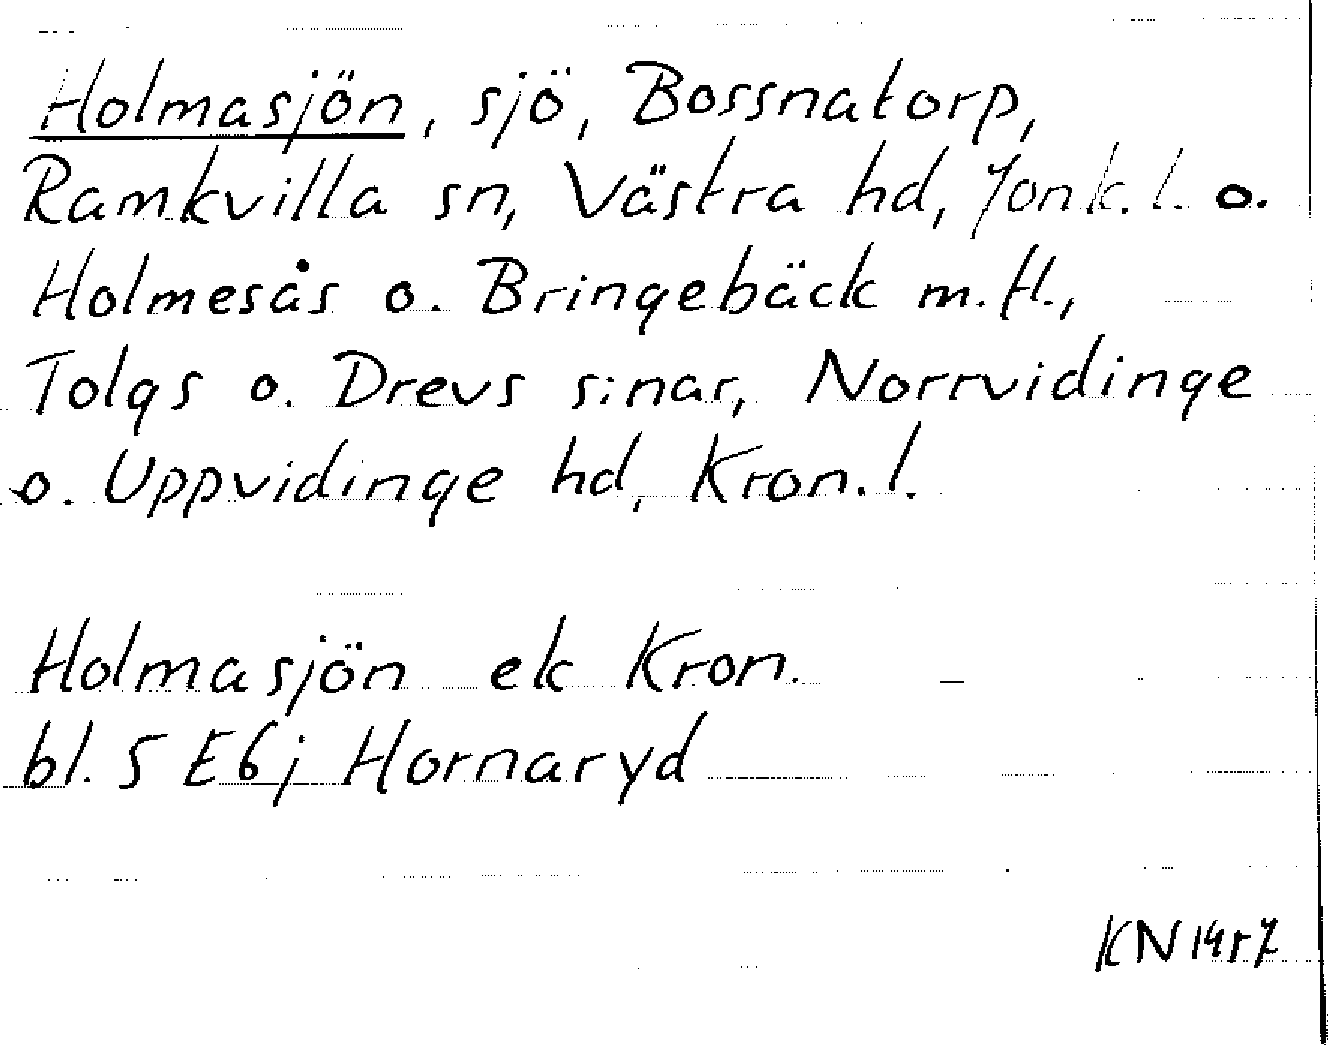 Holmasjön, sjö, Bossnatorp,
Ramkvilla sn, Västra hd, Jönk. l. o.
Holmesås o. Bringebäck m.fl.,
Tolgs o. Drevs s:nar, Norrvidinge
o. Uppvidinge hd, Kron. l.
Holmasjön ek Kron.
bl. 5 E6j Hornaryd
KN